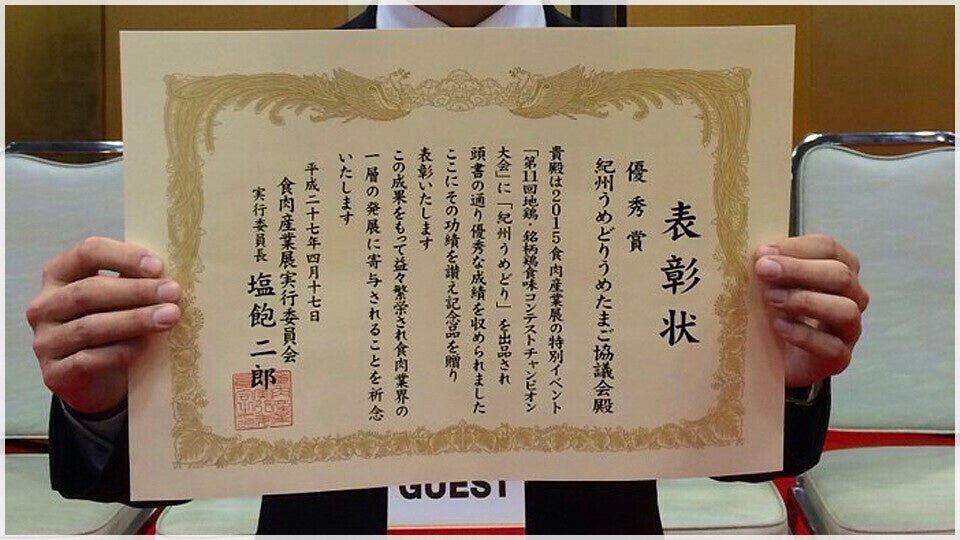 表彰状
優秀賞
紀州うめどりうめたまご協議会殿
貴殿は2015食肉産業展の特別イベント
「第11回地鶏・銘柄鶏食味コンテストチャンピオン
大会」に「紀州うめどり」を出品され
頭書の通り優秀な成績を収められました
ここにその功績を讃え記念品を贈り
表彰いたします
この成果をもって益々繁栄され食肉業界の
一層の発展に寄与されることを祈念
いたします
平成二十七年四月十七日
食肉産業展実行委員会
実行委員長 塩飽二郎
GUEST